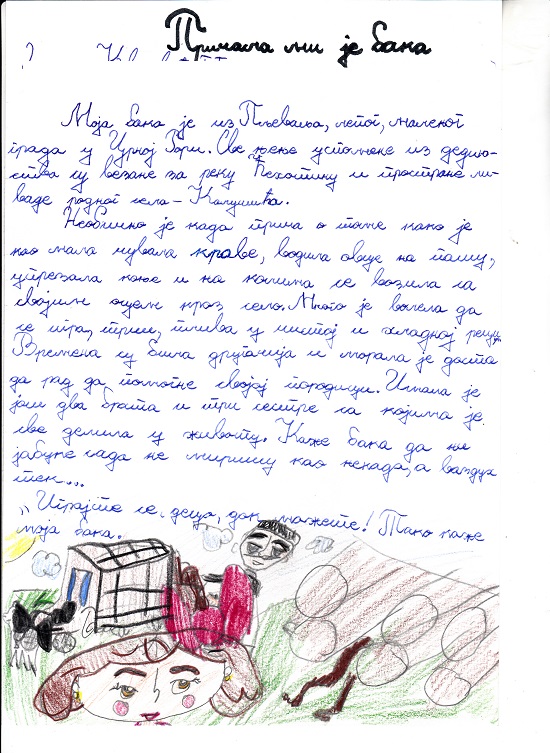 Причала ми је бака
Моја бака је из Пљеваља, лепог, маленог
града у Црној Гори. Све њене успомене из детињ-
ства су везане за реку Ћехотину и простране ли-
ваде родног села - Калушића.
Необично је када прича о томе како је
као мала чувала краве, водила овце на пашу,
упрезала коње и на колима се возила са
својим оцем кроз село. Много је волела да
се игра, трчи, плива у чистој и хладној реци.
Времена су била другачија и морала је доста
да ради да помогне својој породици. Имала је
још два брата и три сестре са којима је
све делила у животу. Каже бака да ни
јабуке сада не миришу као некада, а ваздух
тек...
„Играјте се, децо, док можете! Тако каже
моја бака.